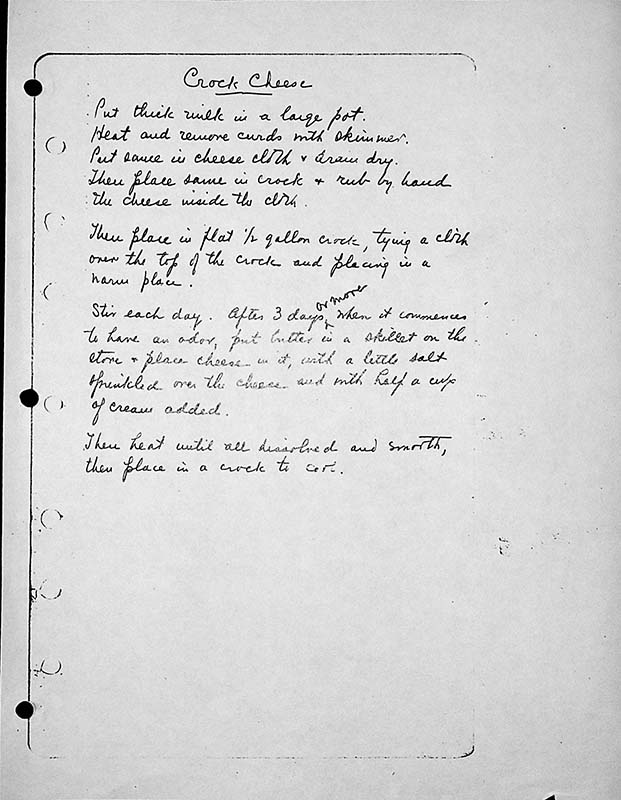 Crock Cheese
Put thick milk in a large pot.
Heat and remove curds with skimmer.
Put same in cheese cloth + drain dry.
Then place same in crock + rub by hand
the cheese inside the cloth.
Then place in flat 1/2 gallon crock, tying a cloth
over the top of the crock and placing in a
warm place.
Stir each day. After 3 days or more, when it commences
to have an odor, put butter in a skillet on the
stove + place cheese in it, with a little salt
sprinkled over the cheese and with half a cup
of cream added.
Then heat until all dissolved and smooth,
then place in a crock to cool.